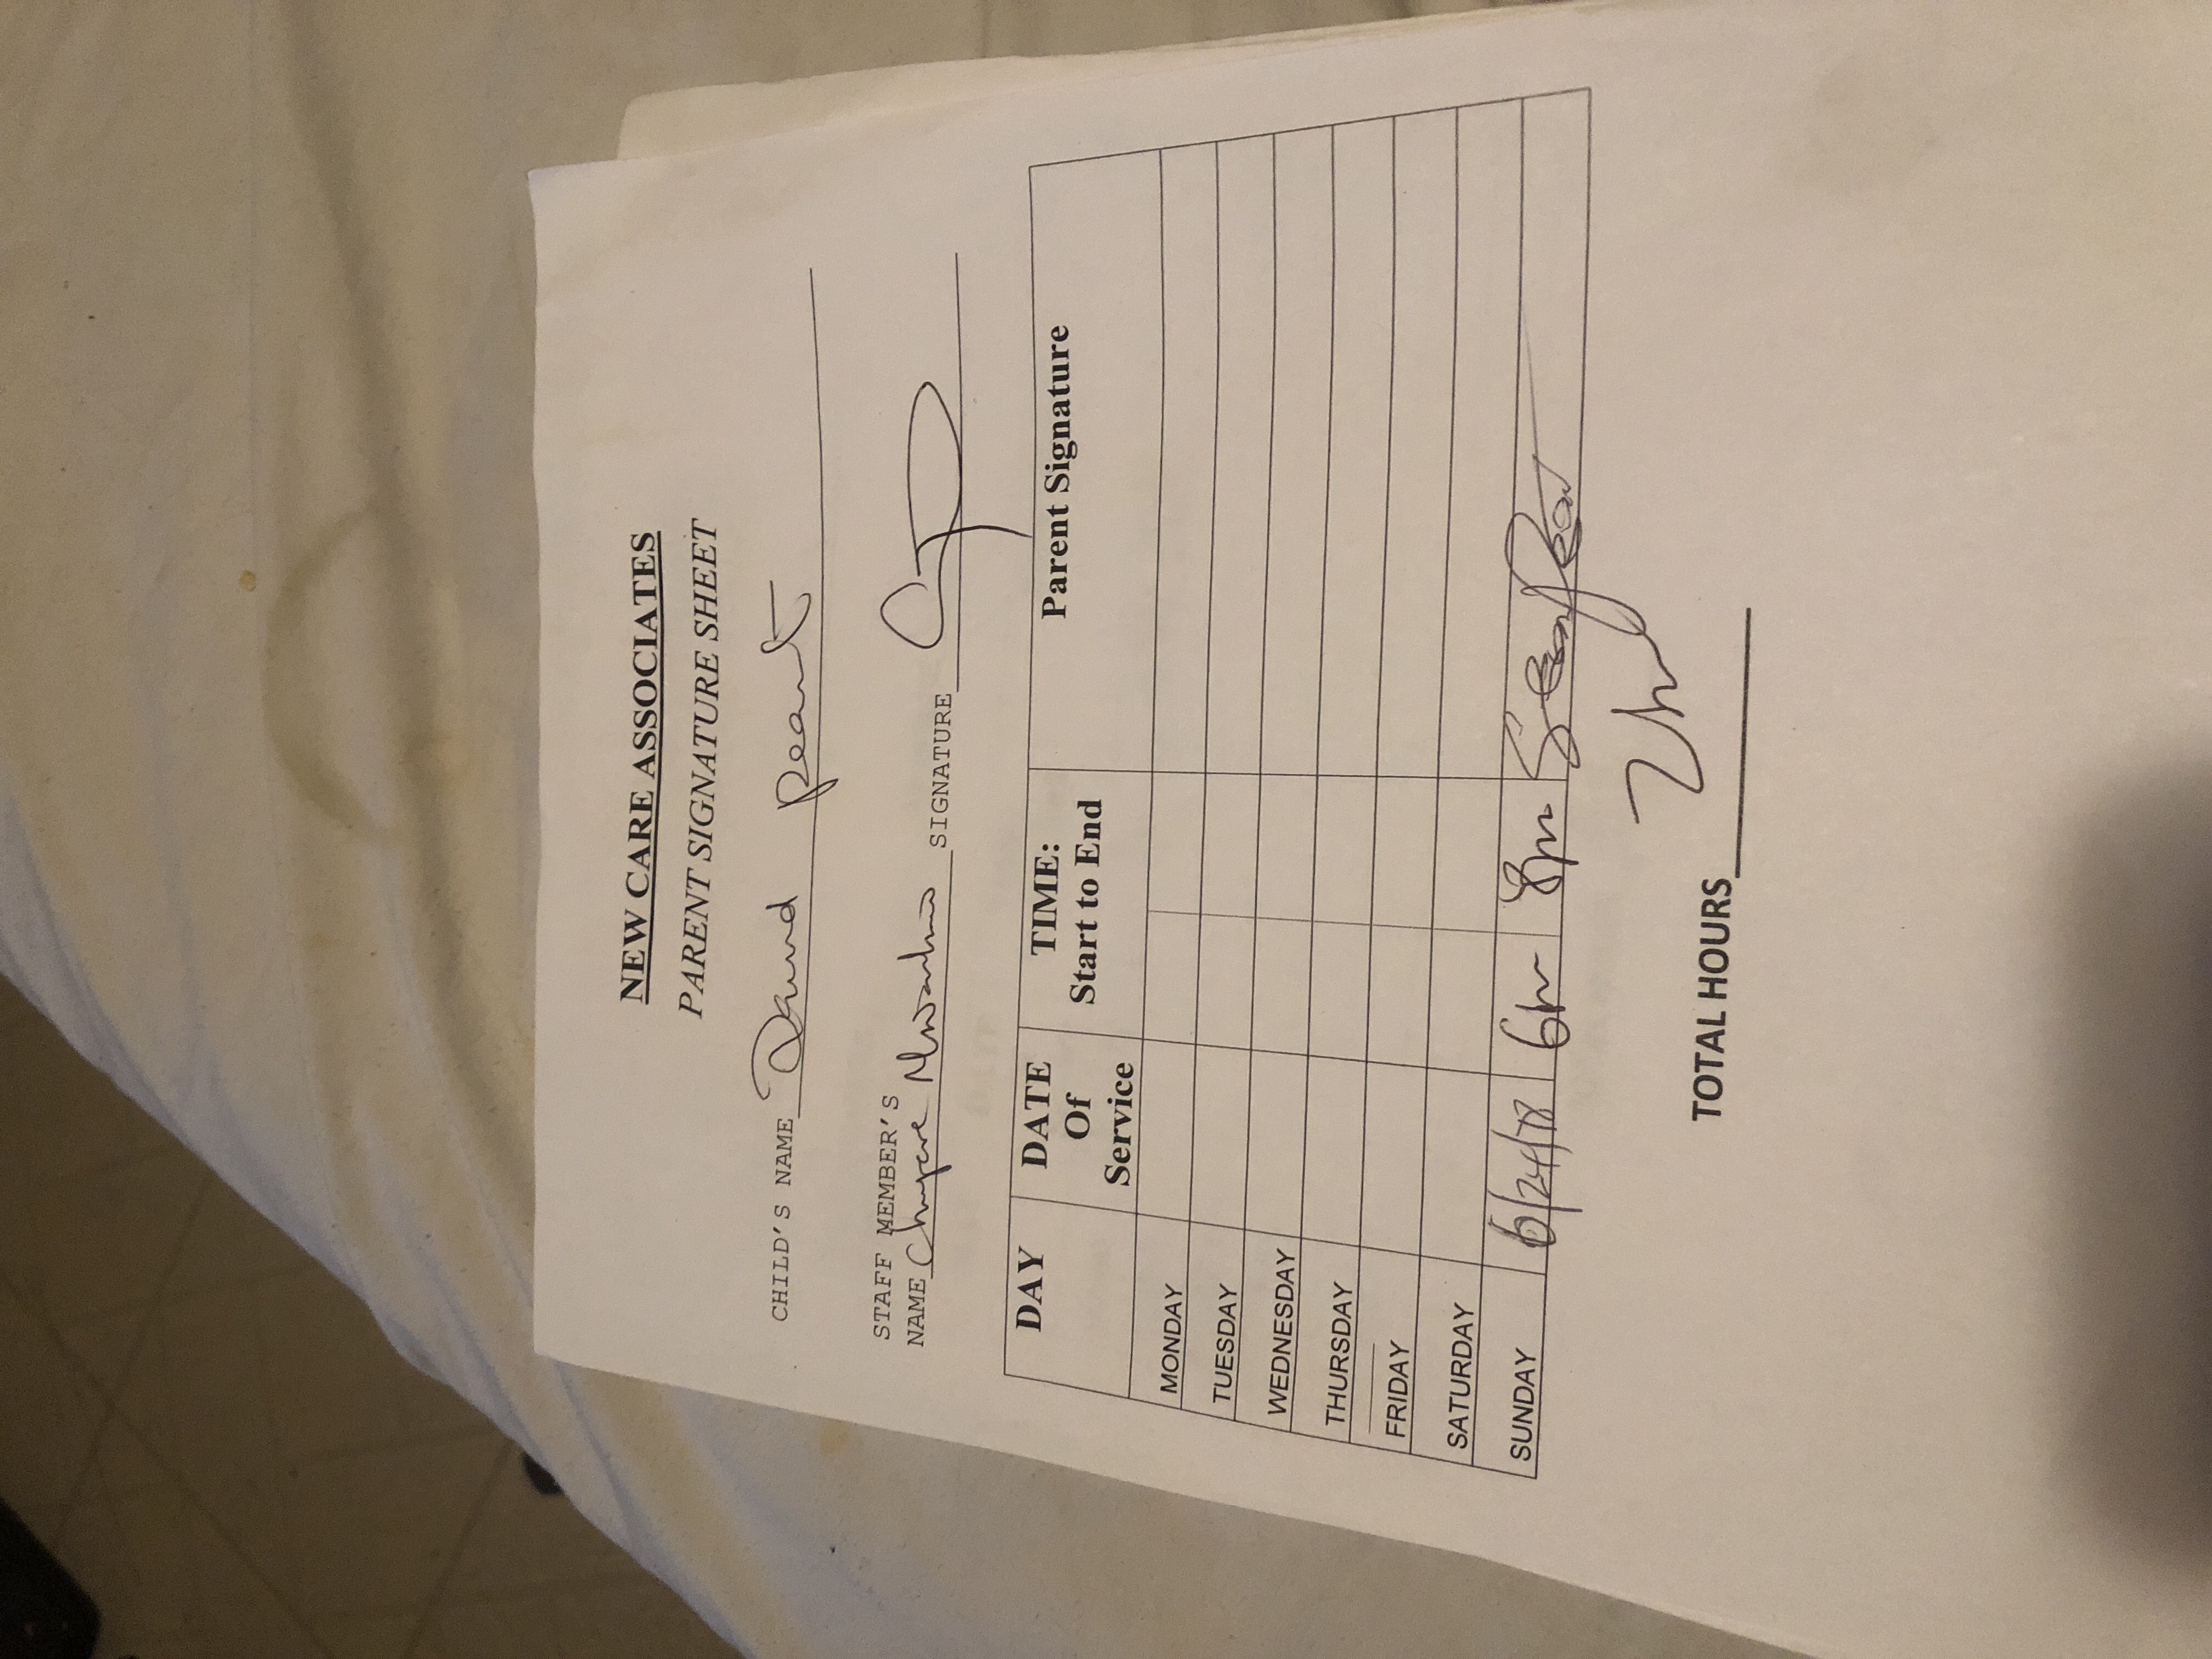 NEW CARE ASSOCIATES
PARENT SIGNATURE SHEET
CHILD'S NAME David peart
STAFF MEMBER'S
NAME SIGNATURE
DAY DATE Of Service TIME: Start to End Parent Signature
MONDAY
TUESDAY
WEDNESDAY
THURSDAY
FRIDAY
SATURDAY
SUNDAY 6/24/18 6pm 8pm
2hr
TOTAL HOURS